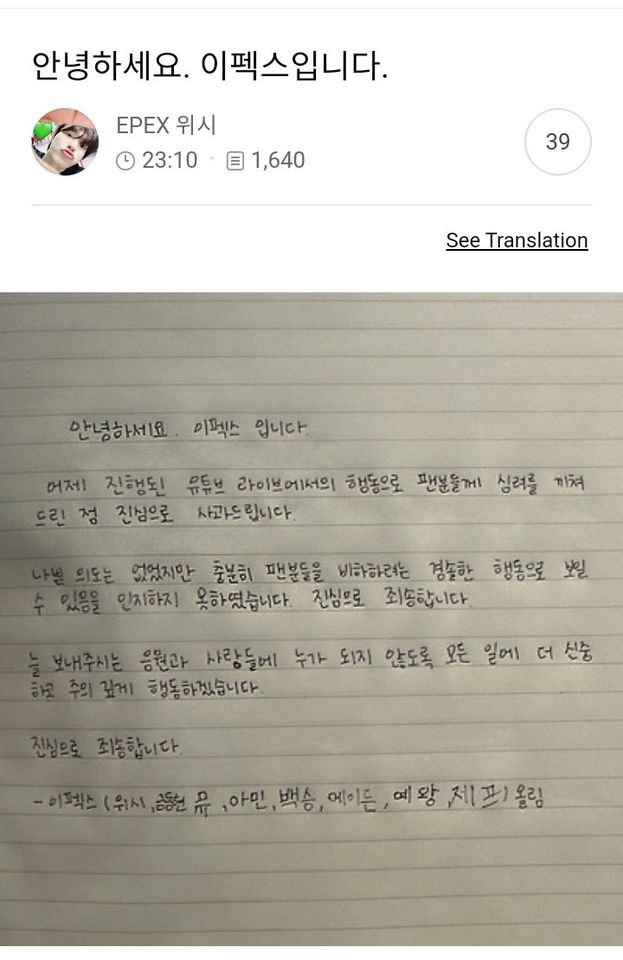 안녕하세요. 이펙스입니다.
EPEX 위시
23:10 · 1,640
39
See Translation
안녕하세요. 이펙스 입니다.
어제 진행된 유튜브 라이브에서의 행동으로 팬분들께 심려를 끼쳐
드린 점 진심으로 사과드립니다.
나쁠 의도는 없었지만 충분히 팬분들을 비하하려는 경솔한 행동으로 보일
수 있음을 인지하지 못하였습니다. 진심으로 죄송합니다
늘 보내주시는 응원과 사랑들에 누가 되지 않도록 모든 일에 더 신중
하고 주의 깊게 행동하겠습니다.
진심으로 죄송합니다.
- 이펙스 (위시, 금동현, 뮤, 아민, 백승, 에이든, 예왕, 제프) 올림